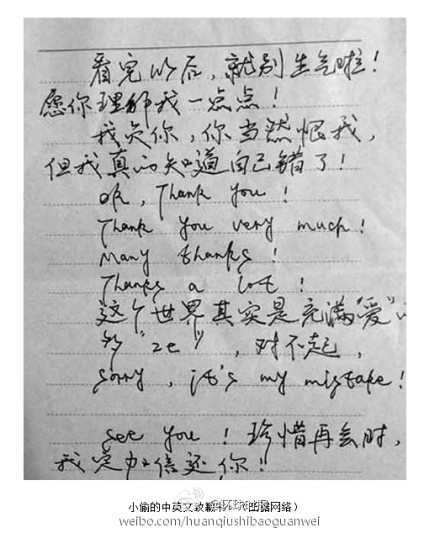 看完以后，就别生气啦！
愿你理解我一点点！
我负你，你当然恨我，
但我真的知道自己错了！
OK, Thank you!
Thank you very much!
Many thanks!
Thanks a lot!
这个世界其实是充满“爱”
的“ze”，对不起，
sorry, it's my mistake!
see you！珍惜再会时，
我定加倍还你！
小偷的中英文致歉
网络）
weibo.com/huanqiushibaoguanwei